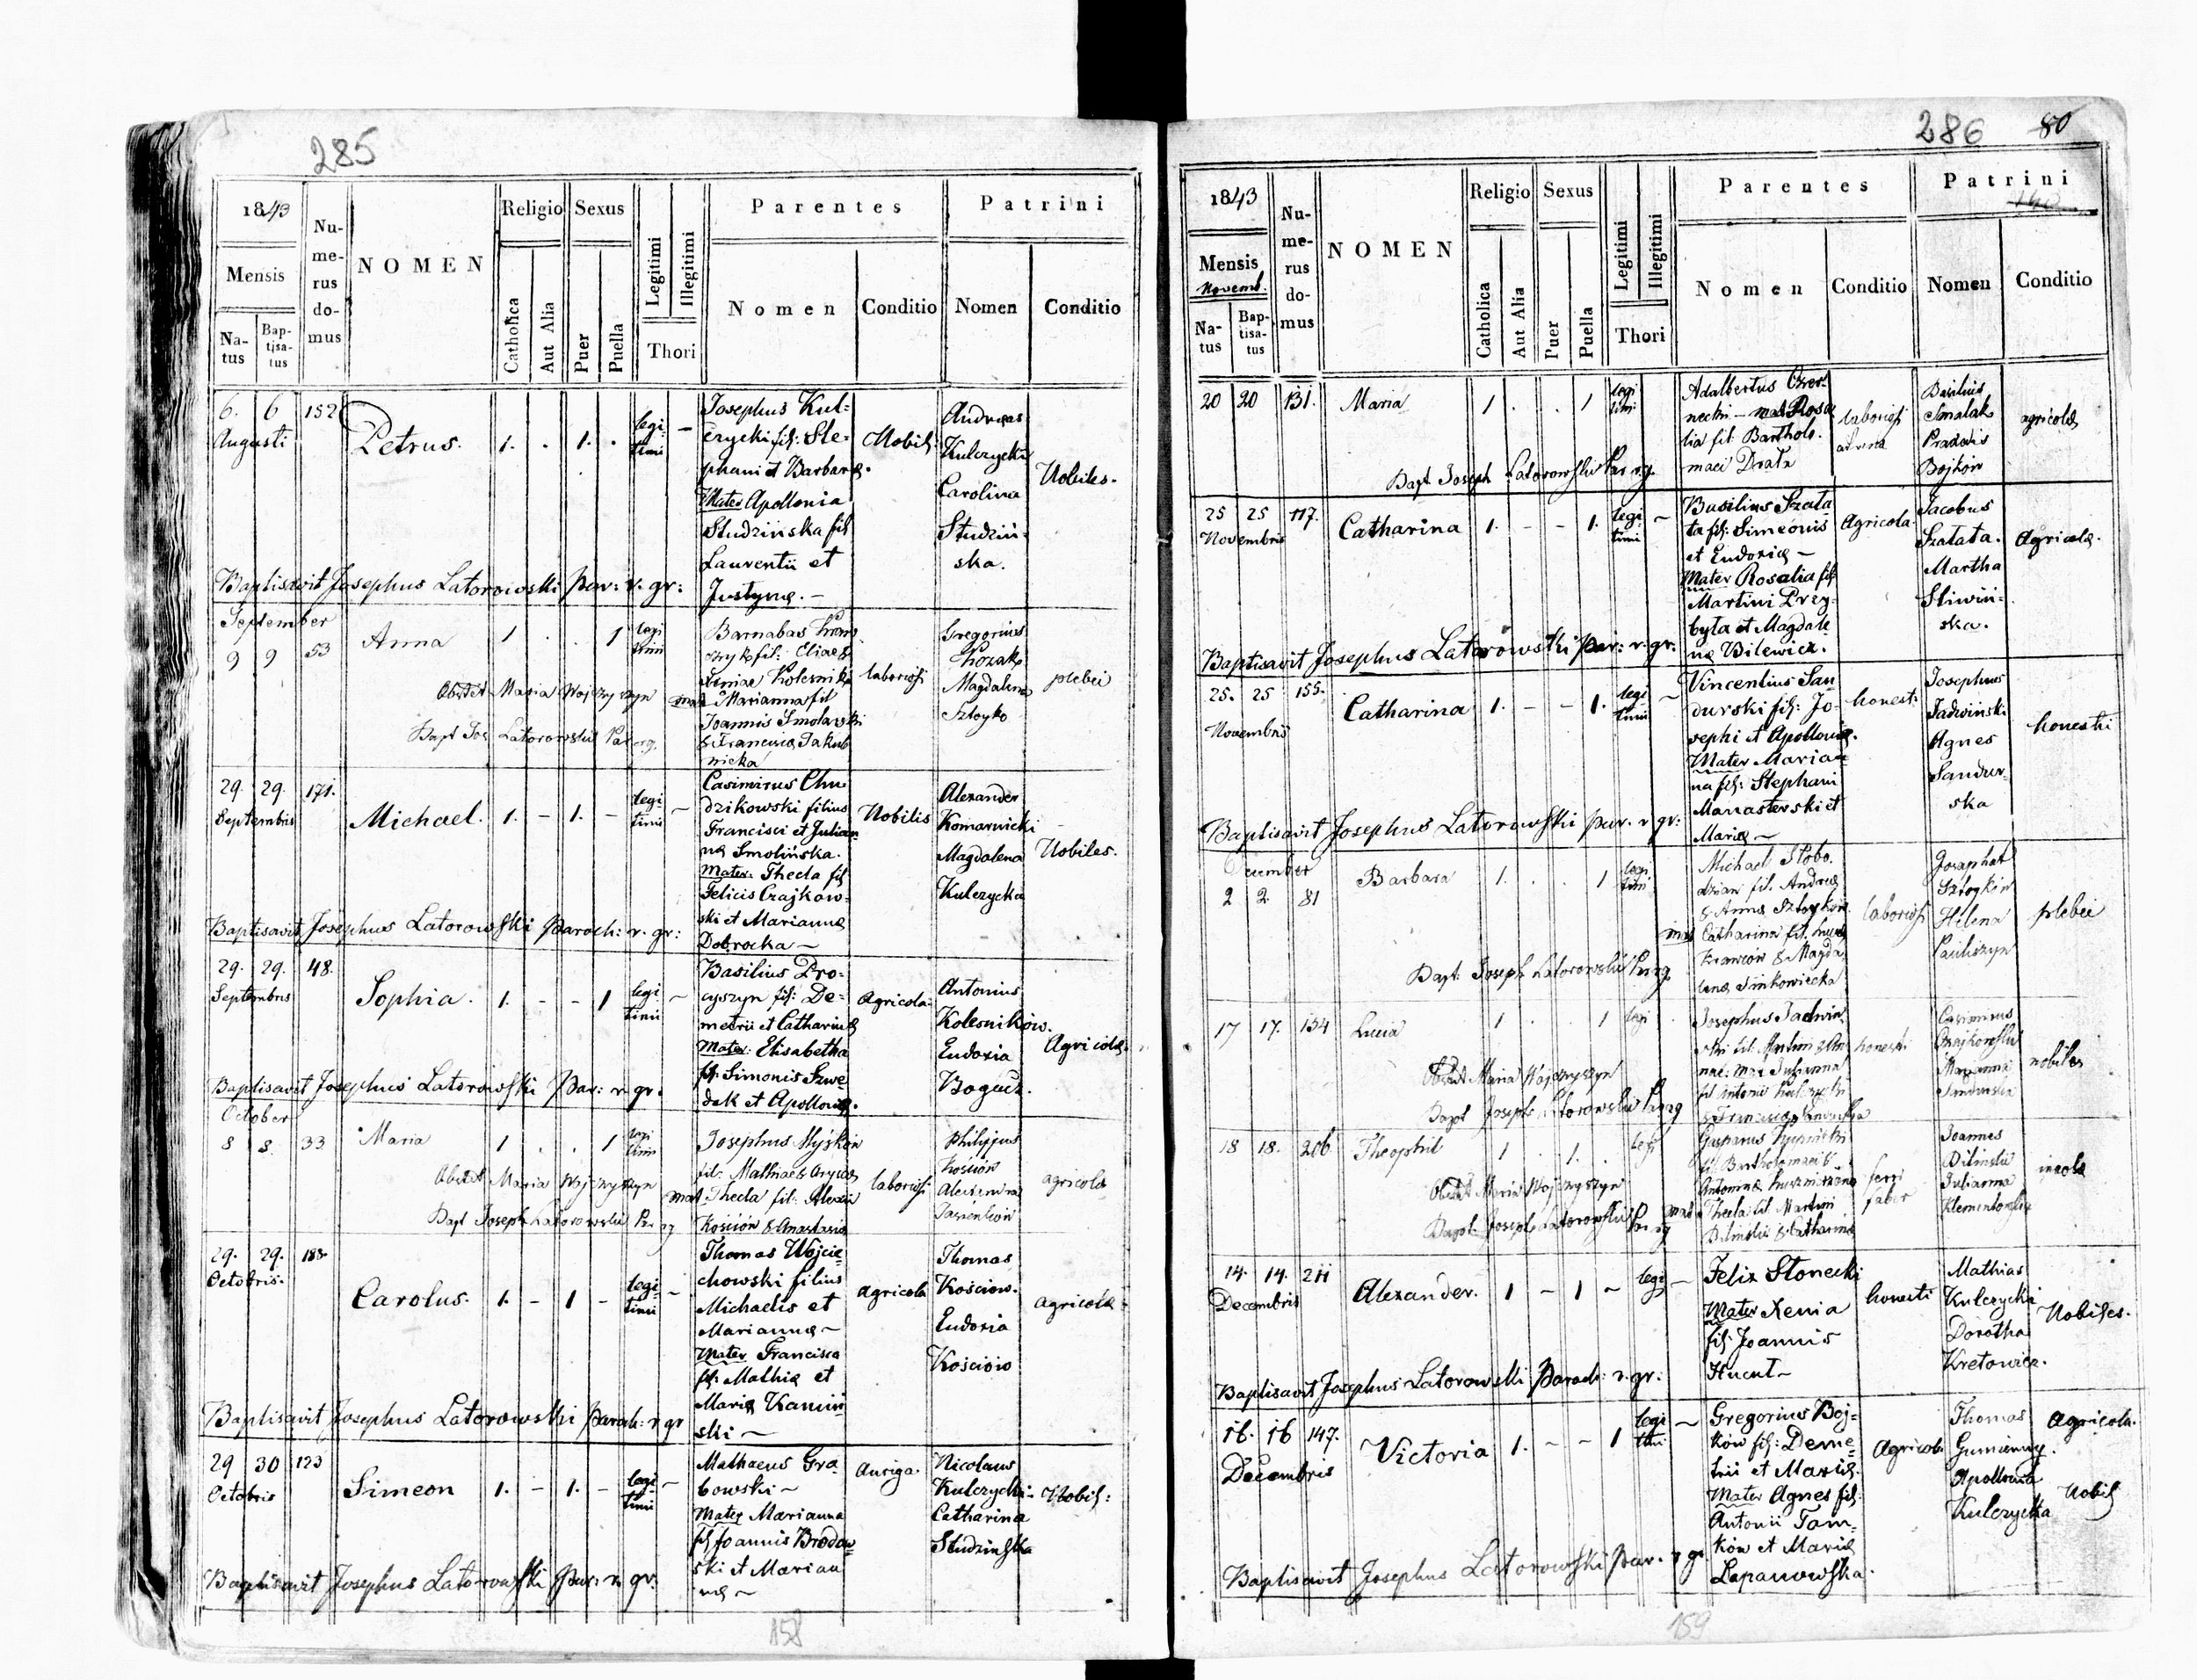 285
1843
Mensis
Natus
Baptisatus
Numerus domus
NOMEN
Religio
Catholica
Aut Alia
Sexus
Puer
Puella
Legitimi
Illegitimi
Thori
Parentes
Nomen
Conditio
Patrini
Nomen
Conditio
6. 6 152
Augusti
Petrus. 1. . 1. .
legi-
timi
Josephus Kul=
czycki fil: Ste=
phani et Barbarae.
Mater Apollonia
Studzińska fil
Laurentii et
Justynae. –
Nobil:
Andreas
Kulczycki
Carolina
Studziń-
ska.
Nobiles.
Baptisavit Josephus Latorowski par: r. gr:
September
9 9 53
Anna 1 . . 1
legi
timi
Barnabas
fil: Eliae &
Mariannа fil
Joannis
& Francisca Jakub
nicka
laboriosi
Gregorius
Kozak
Magdalena
Sztoyko
plebei
Obstet Maria Wojczyszyn
Bapt Jos Latorowski Par rg.
29. 29. 171.
Septembris
Michael. 1. – 1. –
legi-
timi
Casimirus Chu
dzikowski filius
Francisci et Julian
nae Smolińska.
Mater: Thecla fil
Felicis Czajkow-
ski et Mariannae
Dobrocka ~
Nobilis
Alexander
Komarnicki
Magdalena
Kulczycka
Nobiles.
Baptisavit Josephus Latorowski Paroch: r. gr:
29. 29. 48.
Septembris
Sophia. 1. – – 1
legi
timi
Basilius Pro=
cyszyn fil: De=
metrii et Catharinae
Mater: Elisabetha
fil: Simonis Szwe
dak et Apolloniae.
Agricola.
Antonius
Kolesników.
Eudoxia
Bogucz.
Agricolae.
Baptisavit Josephus Latorowski Par: r. gr.
October
8 8. 33
Maria 1 . . 1
legi
timi
Josephus Myśków
fil: Mathiae
mat Thecla fil: Alexii
Kościów & Anastasia
laboriosi
Philippus
Kościów
agricolae
Obstet Maria Wojczyszyn
Bapt Joseph Latorowski Par rg
29. 29. 188.
Octobris.
Carolus. 1. – 1 –
legi-
timi
Thomas Wojcie
chowski filius
Michaelis et
Mariannae ~
Mater Francisca
fil: Mathiae et
Mariae Kamiń
ski ~
agricola
Thomas
Kościow.
Eudoxia
Kościow
agricolae.
Baptisavit Josephus Latorowski Paroch: r gr
29 30 123
Octobris
Simeon 1. – 1. –
legi-
timi
Mathaeus Gra
bowski ~
Mater Marianna
fil Joannis Brodow
ski et Marian
nae ~
Auriga.
Nicolaus
Kulczycki
Catharina
Studzinska
Nobil:
Baptisavit Josephus Latorowski Par: r. gr.
158
286 80
1843
Mensis
Novemb.
Natus
Baptisatus
Numerus domus
NOMEN
Religio
Catholica
Aut Alia
Sexus
Puer
Puella
Legitimi
Illegitimi
Thori
Parentes
Nomen
Conditio
Patrini
Nomen
Conditio
20 20 131.
Maria 1 . . 1
legi
timi
Adalbertus Czer-
necki – mat Rosa
lia fil: Bartholo-
maei Drata
laboriosi
Basilius
Smalak
Praxedis
Bojków
agricolae
Bapt Joseph Latorowski Par rg.
25 25 117.
Novembris
Catharina 1. – – 1.
legi
timi
Basilius Szata
ta fil: Simeonis
et Eudoxiae ~
Mater Rosalia fil
Martini Przy-
byta et Magdale
nae Bilewicz.
Agricola
Jacobus
Szatata.
Martha
Sliwiń-
ska.
Agricolae.
Baptisavit Josephus Latorowski par: r. gr:
25. 25 155.
Novembris
Catharina 1. – – 1.
legi
timi
Vincentius San
durski fil: Jo-
sephi et Apolloniae.
Mater Marian
na fil: Stephani
Manasterski et
Mariae ~
honest:
Josephus
Jadwinski
Agnes
Sandur-
ska
honesti
Baptisavit Josephus Latorowski par. r gr:
December
2 2. 81
Barbara 1. . . 1
legi
timi
Michael Słobo
dzian fil. Andreae
& Annae Sztoyków
mat Catharina fil.
Krawców & Magda
lena Sinkowiecka
laboriosi
Josaphat
Sztoyków
Helena
Pauliszyn
plebei
Bapt: Joseph Latorowski Par rg.
17 17. 154
Lucia 1 . . 1
legi
Josephus Jadwin
ski fil: Antoni & An
nae: Mat Susanna
fil Antonii Kulczycki
& Francisca
honesti
Casimirus
Czajkowski
Marianna
Sandurska
nobiles
Obstet Maria Wojczyszyn
Bapt Joseph Latorowski Par rg
18 18. 206
Theophil 1 . 1. .
legi
Gasparus
fil Bartholomaei &
Antonina
mat Thecla fil. Martini
Bilinski & Catharina
ferri
faber
Joannes
Bilinski
Julianna
Klementowska
incolae
Obstet Maria Wojczyszyn
Bapt: Joseph Latorowski Par rg
14. 14. 211
Decembris
Alexander. 1 – 1 ~
legi
Felix Słonecki
Mater Xenia
fil: Joannis
Hucut ~
honesti
Mathias
Kulczycki
Dorotha
Kretowicz.
Nobiles.
Baptisavit Josephus Latorowski Paroch: r. gr:
16. 16 147.
Decembris
Victoria 1. – – 1
legi
timi
Gregorius Boj=
ków fil: Deme=
trii et Mariae.
Mater Agnes fil:
Antonii Tom=
ków et Mariae
Lapanowska.
Agricola
Thomas
Gumienny.
Apollonia
Kulczycka
Agricola.
Nobil
Baptisavit Josephus Latorowski par. r gr
159